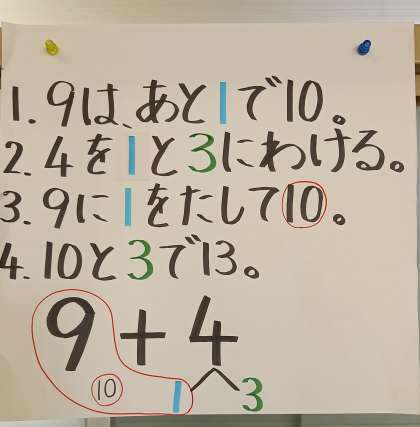 1.9は、あと1で10。
2.4を1と3にわける。
3.9に1をたして10。
4.10と3で13。
9+4
10 1 3